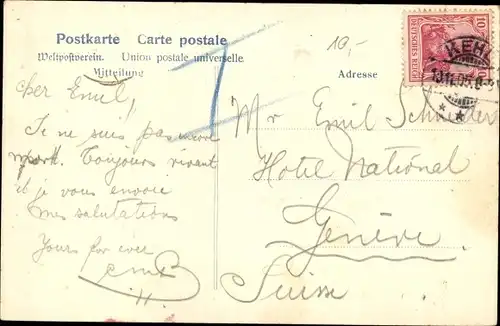 Postkarte Carte postale
Weltpostverein. Union postale universelle
Mitteilung
Adresse
10,-
10
DEUTSCHES REICH
KEHL
cher Emil,
Je ne suis pas encore
mort. Toujours vivant
et je vous envoie
mes salutations
Yours for ever
Mr Emil
Hotel National
Genève.
Suisse